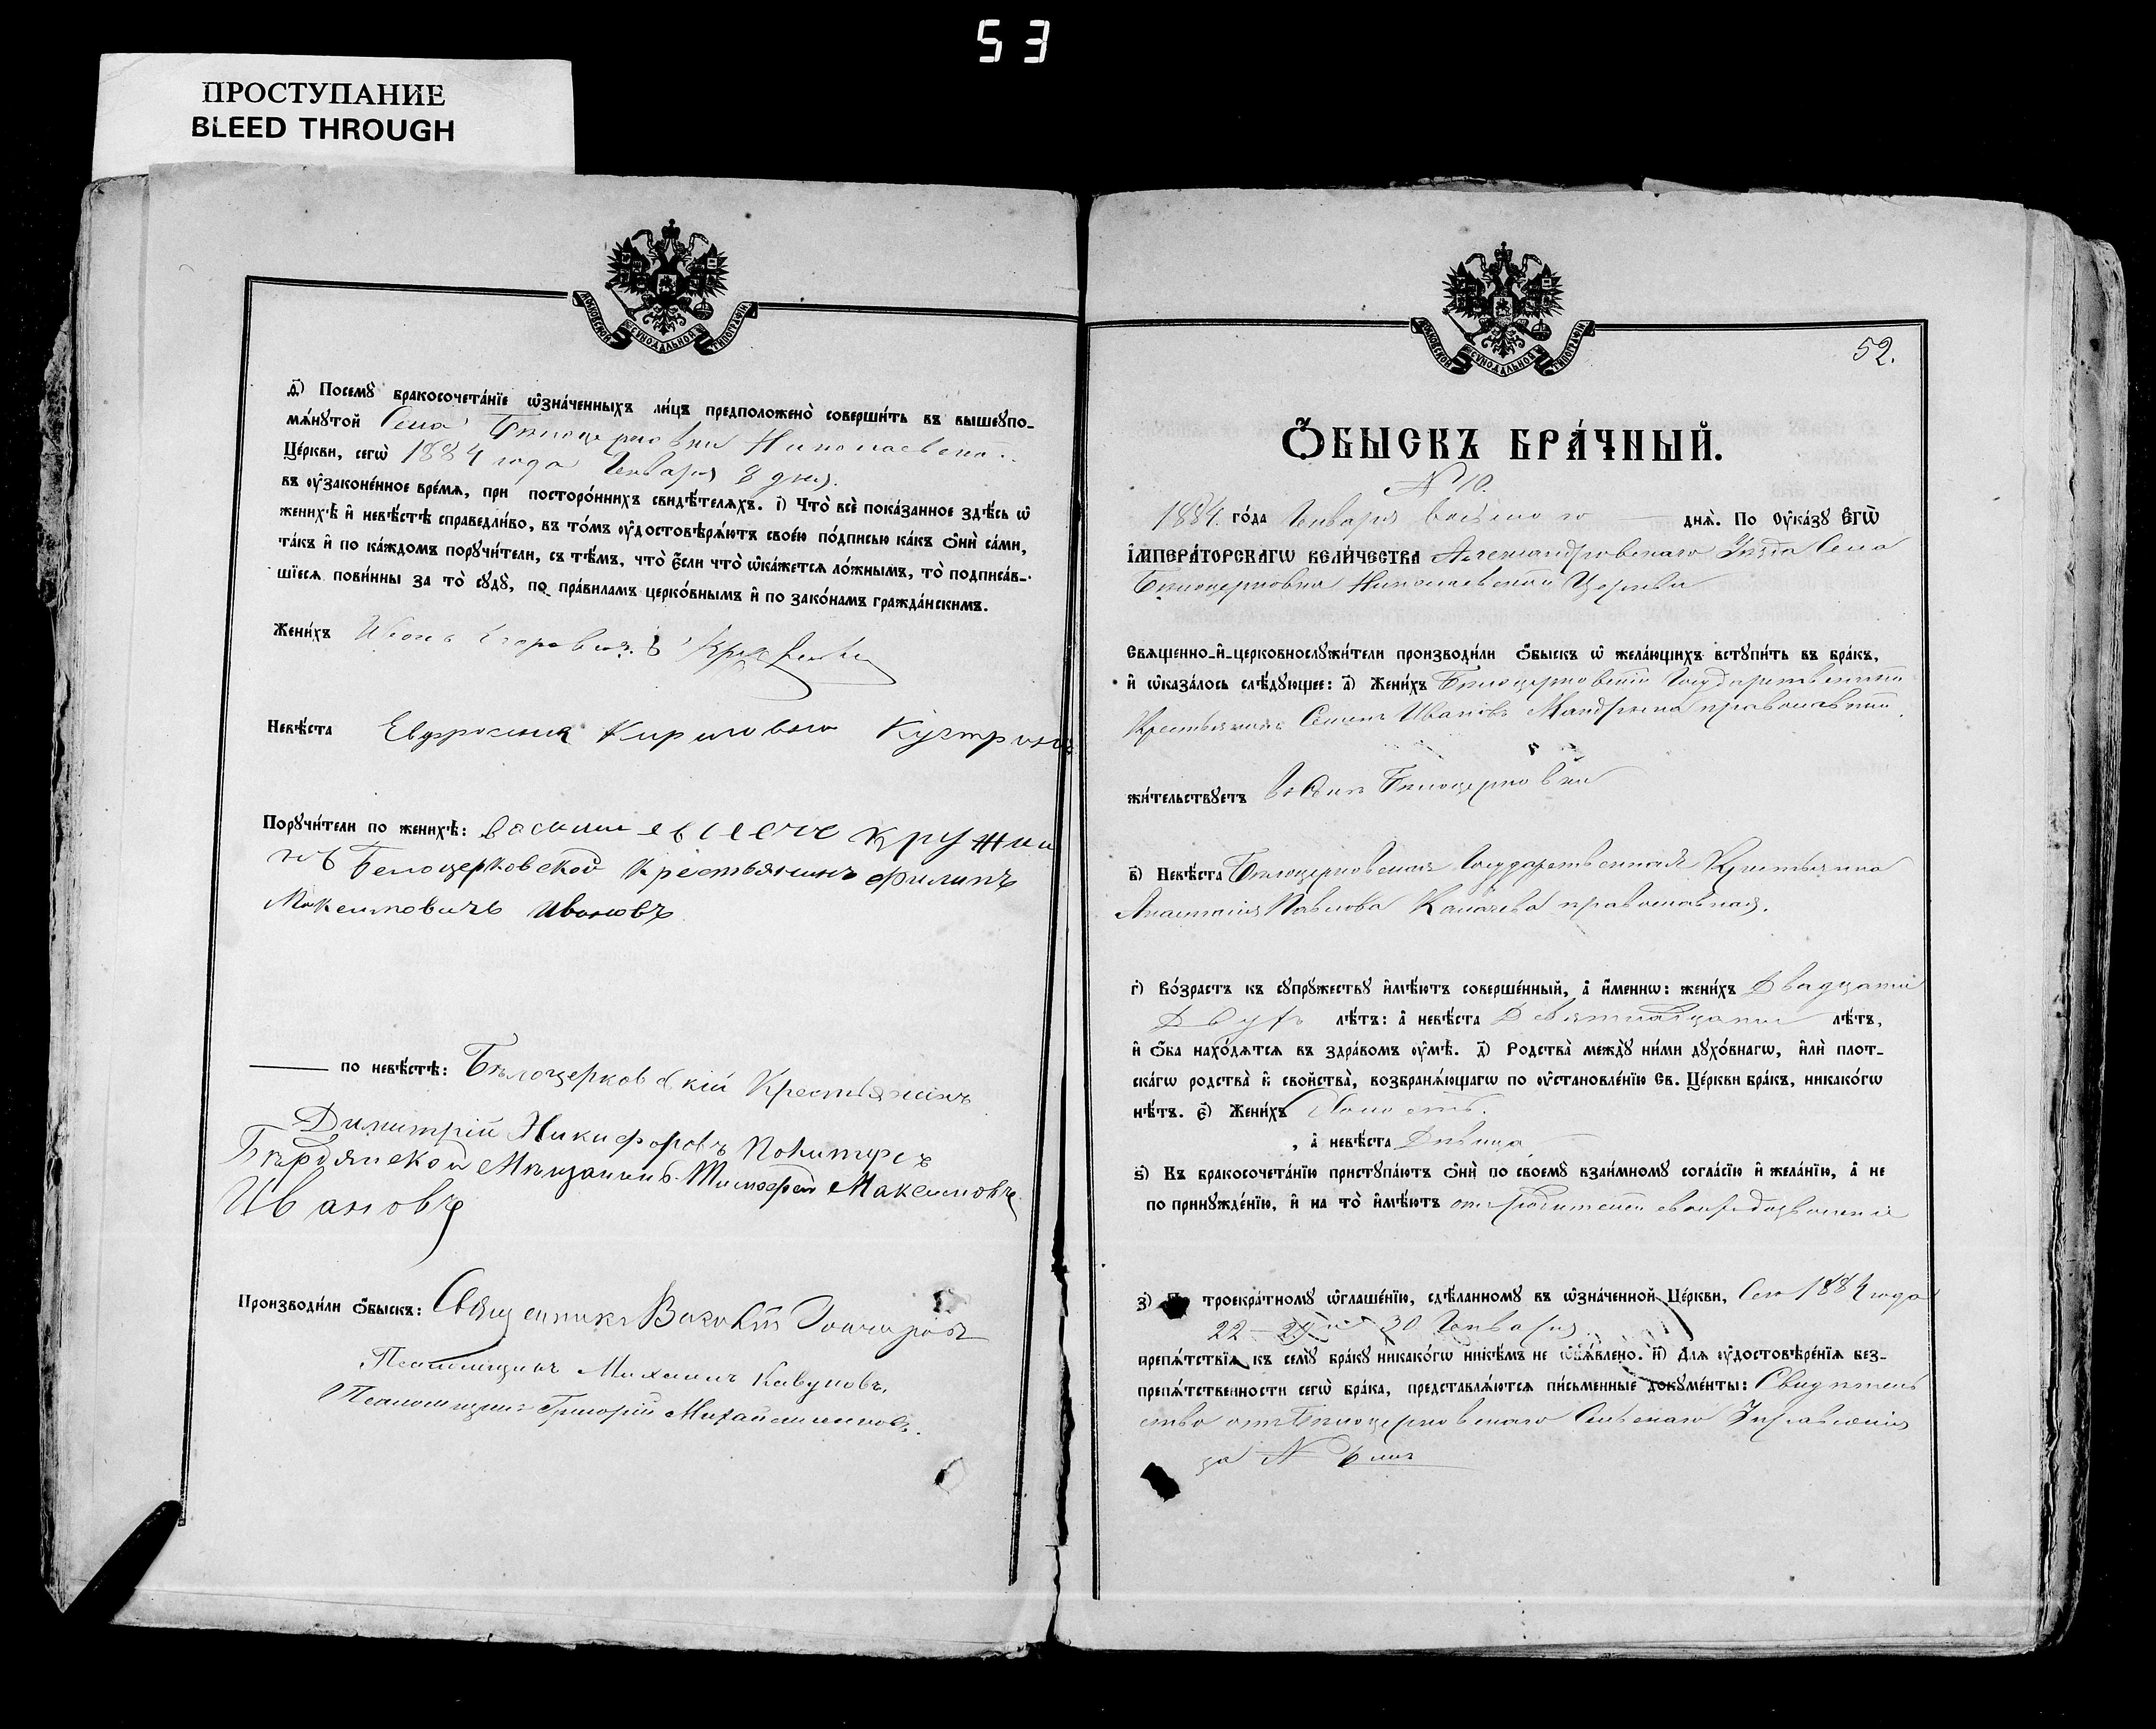 53
ПРОСТУПАНИЕ
BLEED THROUGH
МОСКОВСКОЙ СѴНОДАЛЬНОЙ ТИПОГРАФІИ
д҃) Посемꙋ̀ бракосочета́нїе ѡ҆зна́ченныхъ ли́цъ предположено̀ соверши́ть въ вышеꙋпо-
мѧ́нꙋтой Села Бѣлоцерковки Николаевской
Це́ркви, сегѡ̀ 1884 года Генваря 8 дня.
въ ᲂу҆законе́нное вре́мѧ, при посторо́ннихъ свидѣ́телѧхъ. і҃) Что̀ всѐ пока́занное здѣ́сь ѡ҆
женихѣ̀ и҆ невѣ́стѣ справедли́во, въ то́мъ ᲂу҆достовѣрѧ́ютъ свое́ю по́дписью ка́къ ѻ҆нѝ са́ми,
та́къ и҆ по ка́ждомъ порꙋчи́тели, съ тѣ́мъ, что̀ є҆́сли что̀ ѡ҆ка́жетсѧ ло́жнымъ, то̀ подписа́в-
шїесѧ пови́нны за то̀ сꙋдꙋ̀, по пра́виламъ церко́внымъ и҆ по зако́намъ гражда́нскимъ.
Жени́хъ Егоровичъ
Невѣ́ста Евфросиния Кирилова
Порꙋчи́тели по женихѣ̀: василий евсеечъ кружко
въ Белоцерковской крестьянинъ филипъ
Максимовичь Ивановъ
по невѣ́стѣ: Бѣлоцерковскій Крестьянинъ
Димитрій Никифоровъ
Бердянской Мѣщанинъ Тимофей Максимовъ
Ивановъ
Производи́ли ѻ҆́быскъ: Священникъ Гончаровъ
Псаломщикъ Михаилъ Кавуновъ.
Псаломщикъ Григорій
МОСКОВСКОЙ СѴНОДАЛЬНОЙ ТИПОГРАФІИ
52.
Ѻ҆́БЫСКЪ БРА́ЧНЫЙ.
N 10.
1884. го́да Генваря восьмого днѧ̀. По ᲂу҆ка́зꙋ Е҆ГѠ̀
І҆МПЕРА́ТОРСКАГѠ ВЕЛИ́ЧЕСТВА Александровскаго Уѣзда Села
Бѣлоцерковки Николаевской Церкви
Свѧще́нно-и҆-церковнослꙋжи́тели производи́ли ѻ҆́быскъ ѡ҆ жела́ющихъ встꙋпи́ть въ бра́къ,
и҆ ѡ҆каза́лось слѣ́дꙋющее: а҃) Жени́хъ Бѣлоцерковскій Государственный
Крестьянинъ Семенъ Ивановъ Мандрыка православный
жи́тельствꙋетъ въ Селѣ Бѣлоцерковки
в҃) Невѣ́ста Бѣлоцерковская Государственная Крестьянка
Анастасия Павлова Калачева православная.
г҃) Во́зрастъ къ сꙋпрꙋ́жествꙋ и҆мѣ́ютъ соверше́нный, а҆ и҆́меннѡ: жени́хъ Двадцати
Двухъ лѣ́тъ: а҆ невѣ́ста Девятнадцати лѣ́тъ,
и҆ ѻ҆́ба нахо́дѧтсѧ въ здра́вомъ ᲂу҆мѣ̀. д҃) Родства̀ междꙋ̀ ни́ми дꙋхо́внагѡ, и҆лѝ плот-
ска́гѡ родства̀ и҆ свойства̀, возбранѧ́ющагѡ по ᲂу҆становле́нїю Св. Це́ркви бра́къ, никако́гѡ
нѣ́тъ. є҃) Жени́хъ Холостъ.
, а҆ невѣ́ста Дѣвица
ѕ҃) Въ бракосочета́нїю пристꙋпа́ютъ ѻ҆нѝ по своемꙋ̀ взаи́мномꙋ согла́сїю и҆ жела́нїю, а҆ не
по принꙋжде́нїю, и҆ на то̀ и҆мѣ́ютъ отъ родителей своихъ дозволеніе
з҃) троекра́тномꙋ ѡ҆глаше́нїю, сдѣ́ланномꙋ въ ѡ҆зна́ченной Це́ркви, Сего 1884 года
22 – 29 и 30 Генваря
препѧ́тствїѧ къ семꙋ̀ бра́кꙋ никако́гѡ никѣ́мъ не ѡ҆б̾ѧ́влено. и҃) Длѧ ᲂу҆достовѣре́нїѧ без-
препѧ́тственности сегѡ̀ бра́ка, представлѧ́ютсѧ пи́сьменные докꙋме́нты: Свидѣтель
ство отъ Бѣлоцерковскаго Сельскаго Управленія
за N